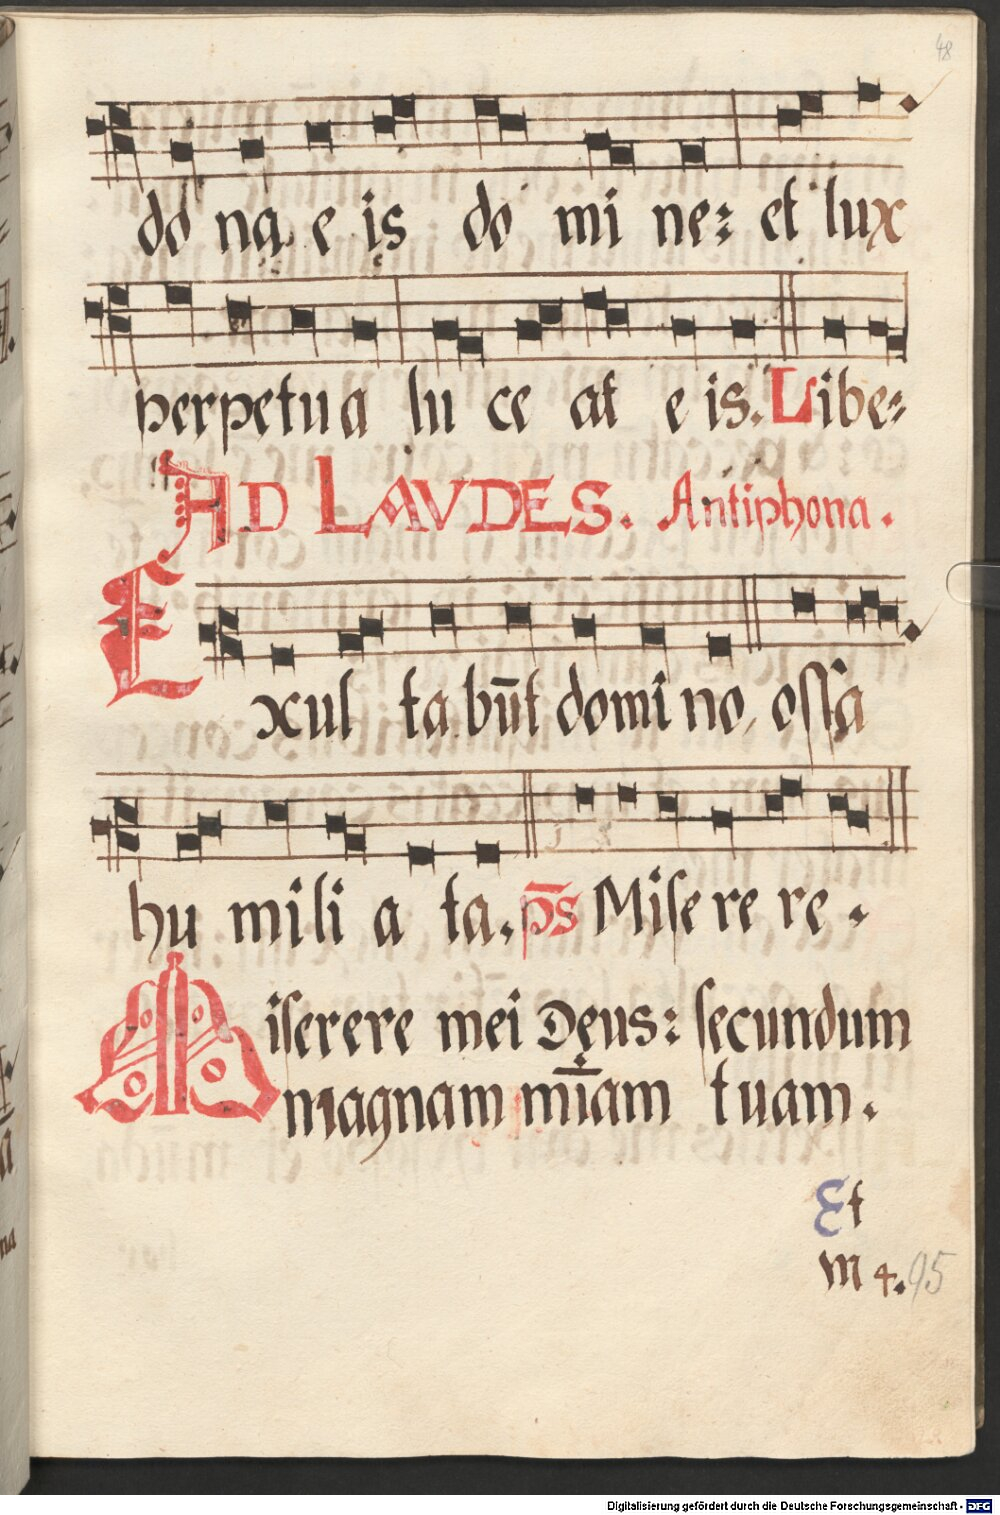 48
do na e is do mi ne: et lux
perpetua lu ce at e is. Libe=
AD LAVDES. Antiphona.
Exul ta būt domino, ossa
hu mili a ta. p̄s Misere re.
Miserere mei Deus: secundum
magnam mīam tuam.
Et
m 4. 95
Digitalisierung gefördert durch die Deutsche Forschungsgemeinschaft - DFG